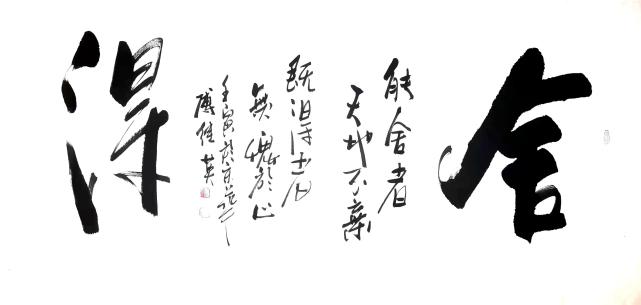 舍
能舍者
天地不棄
既得者
無愧於心
得
壬寅
傅佳英